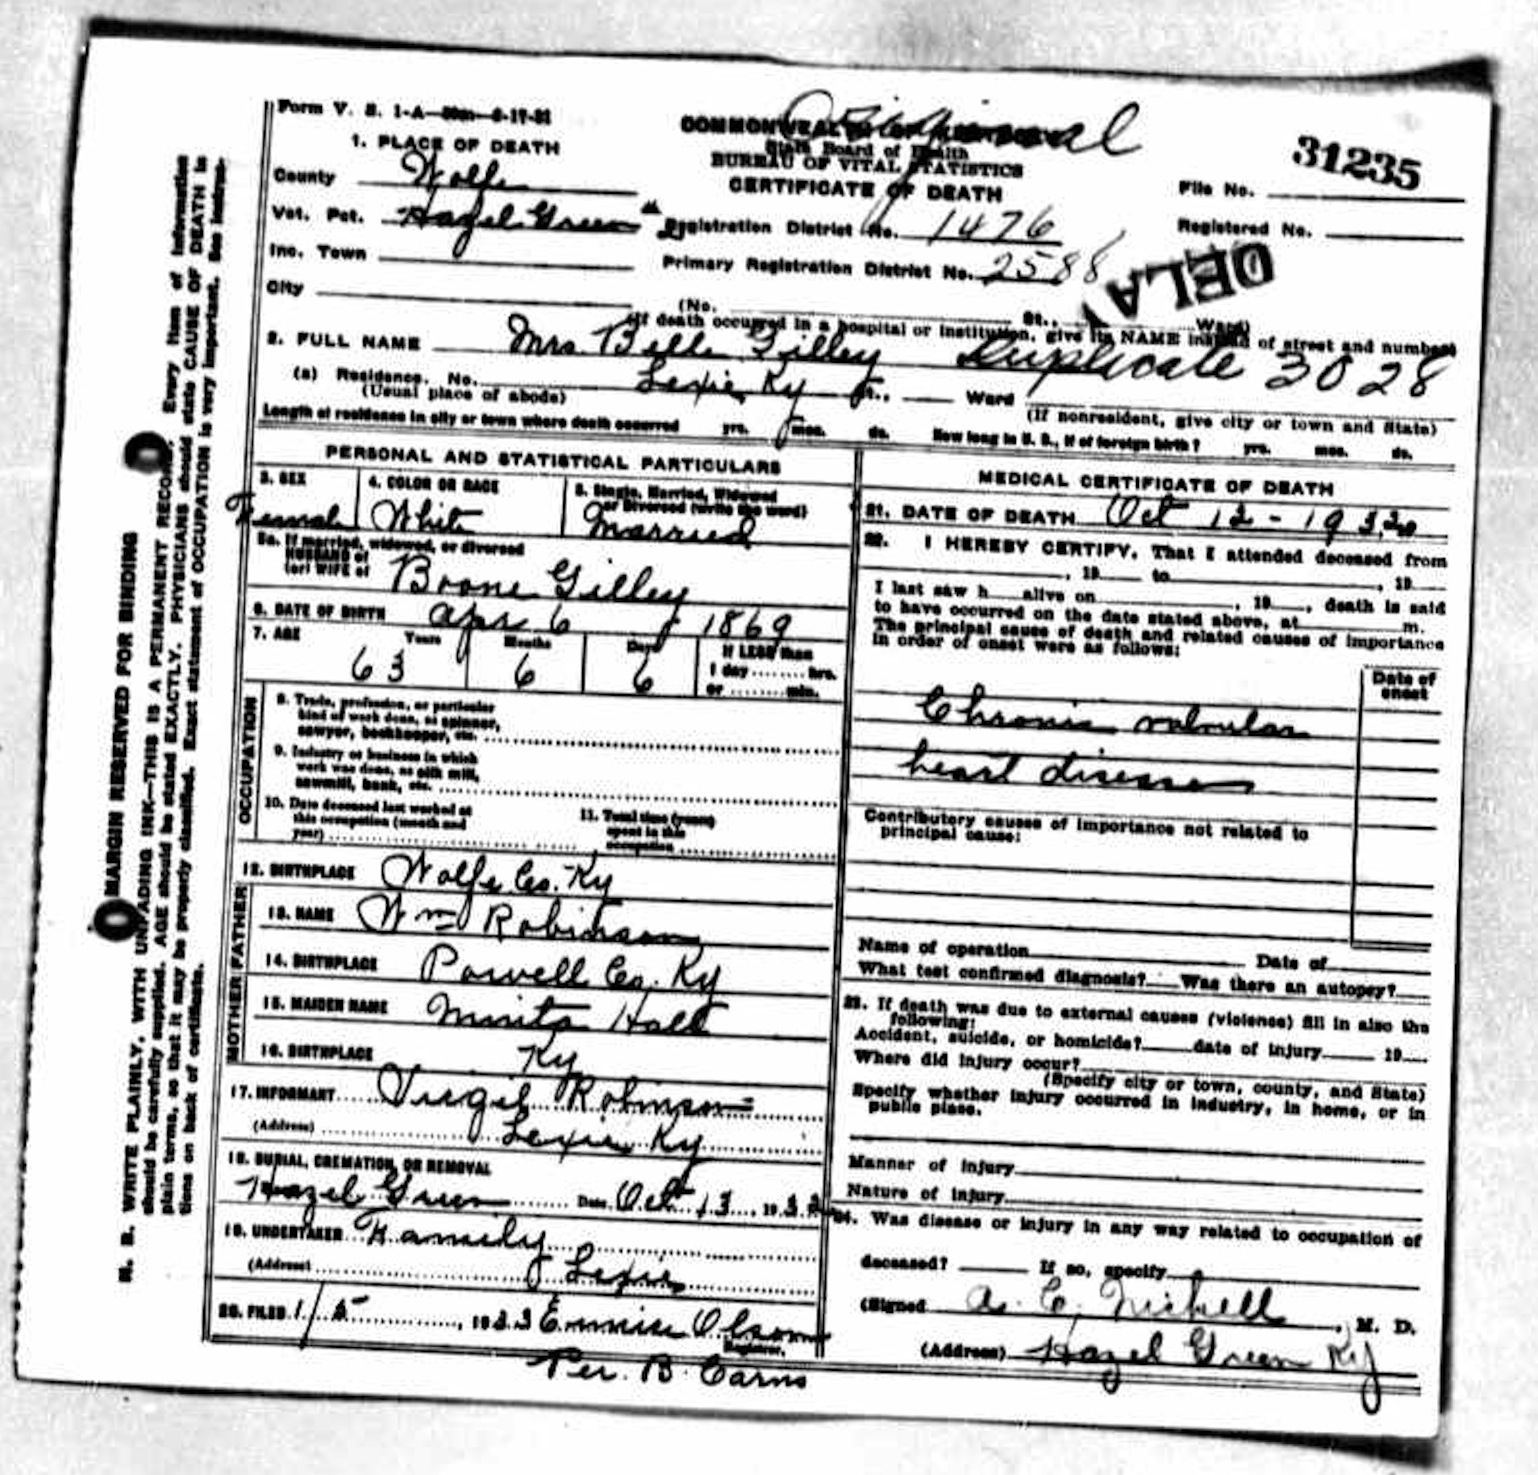 Form V. S. 1-A—50m—6-17-31
Original
COMMONWEALTH OF KENTUCKY
State Board of Health
BUREAU OF VITAL STATISTICS
CERTIFICATE OF DEATH
31235
File No.
Registered No.
1. PLACE OF DEATH
County Wolfe
Vot. Pct. Hazel Green
Registration District No. 1476
Inc. Town
Primary Registration District No. 2588
DELA
City (No. St., Ward)
(If death occurred in a hospital or institution, give its NAME instead of street and number)
2. FULL NAME Mrs. Belle Gilley Duplicate 3028
(a) Residence. No. Lexie, Ky St., Ward
(Usual place of abode) (If nonresident, give city or town and State)
Length of residence in city or town where death occurred yrs. mos. ds. How long in U. S., if of foreign birth? yrs. mos. ds.
PERSONAL AND STATISTICAL PARTICULARS
3. SEX
Female
4. COLOR OR RACE
White
5. Single, Married, Widowed
or Divorced (write the word)
Married
5a. If married, widowed, or divorced
HUSBAND of
(or) WIFE of Boone Gilley
6. DATE OF BIRTH Apr 6 1869
7. AGE Years Months Days If LESS than
63 6 6 1 day ........ hrs.
or ........ min.
OCCUPATION
8. Trade, profession, or particular
kind of work done, as spinner,
sawyer, bookkeeper, etc.
9. Industry or business in which
work was done, as silk mill,
sawmill, bank, etc.
10. Date deceased last worked at
this occupation (month and
year)
11. Total time (years)
spent in this
occupation
12. BIRTHPLACE Wolfe Co. Ky
FATHER
13. NAME Wm Robinson
14. BIRTHPLACE Powell Co. Ky
MOTHER
15. MAIDEN NAME Minta Holt
16. BIRTHPLACE Ky
17. INFORMANT Virgil Robinson
(Address) Lexie Ky
18. BURIAL, CREMATION, OR REMOVAL
Hazel Green Date Oct 13, 1932
19. UNDERTAKER Family
(Address) Lexie
20. FILED 1/5, 1933 Ennise Olson
Registrar.
Per. B. Carns
MEDICAL CERTIFICATE OF DEATH
21. DATE OF DEATH Oct 12 - 1932
22. I HEREBY CERTIFY, That I attended deceased from
, 19 to , 19
I last saw h alive on , 19 , death is said
to have occurred on the date stated above, at m.
The principal cause of death and related causes of importance
in order of onset were as follows:
Date of
onset
Chronic valvular
heart disease
Contributory causes of importance not related to
principal cause:
Name of operation Date of
What test confirmed diagnosis? Was there an autopsy?
23. If death was due to external causes (violence) fill in also the
following:
Accident, suicide, or homicide? date of injury 19
Where did injury occur?
(Specify city or town, county, and State)
Specify whether injury occurred in industry, in home, or in
public place.
Manner of injury
Nature of injury
24. Was disease or injury in any way related to occupation of
deceased? If so, specify
(Signed A. C. Nickell, M. D.
(Address) Hazel Green Ky
MARGIN RESERVED FOR BINDING
N. B. WRITE PLAINLY, WITH UNFADING INK—THIS IS A PERMANENT RECORD. Every item of information
should be carefully supplied. AGE should be stated EXACTLY. PHYSICIANS should state CAUSE OF DEATH in
plain terms, so that it may be properly classified. Exact statement of OCCUPATION is very important. See instruc-
tions on back of certificate.